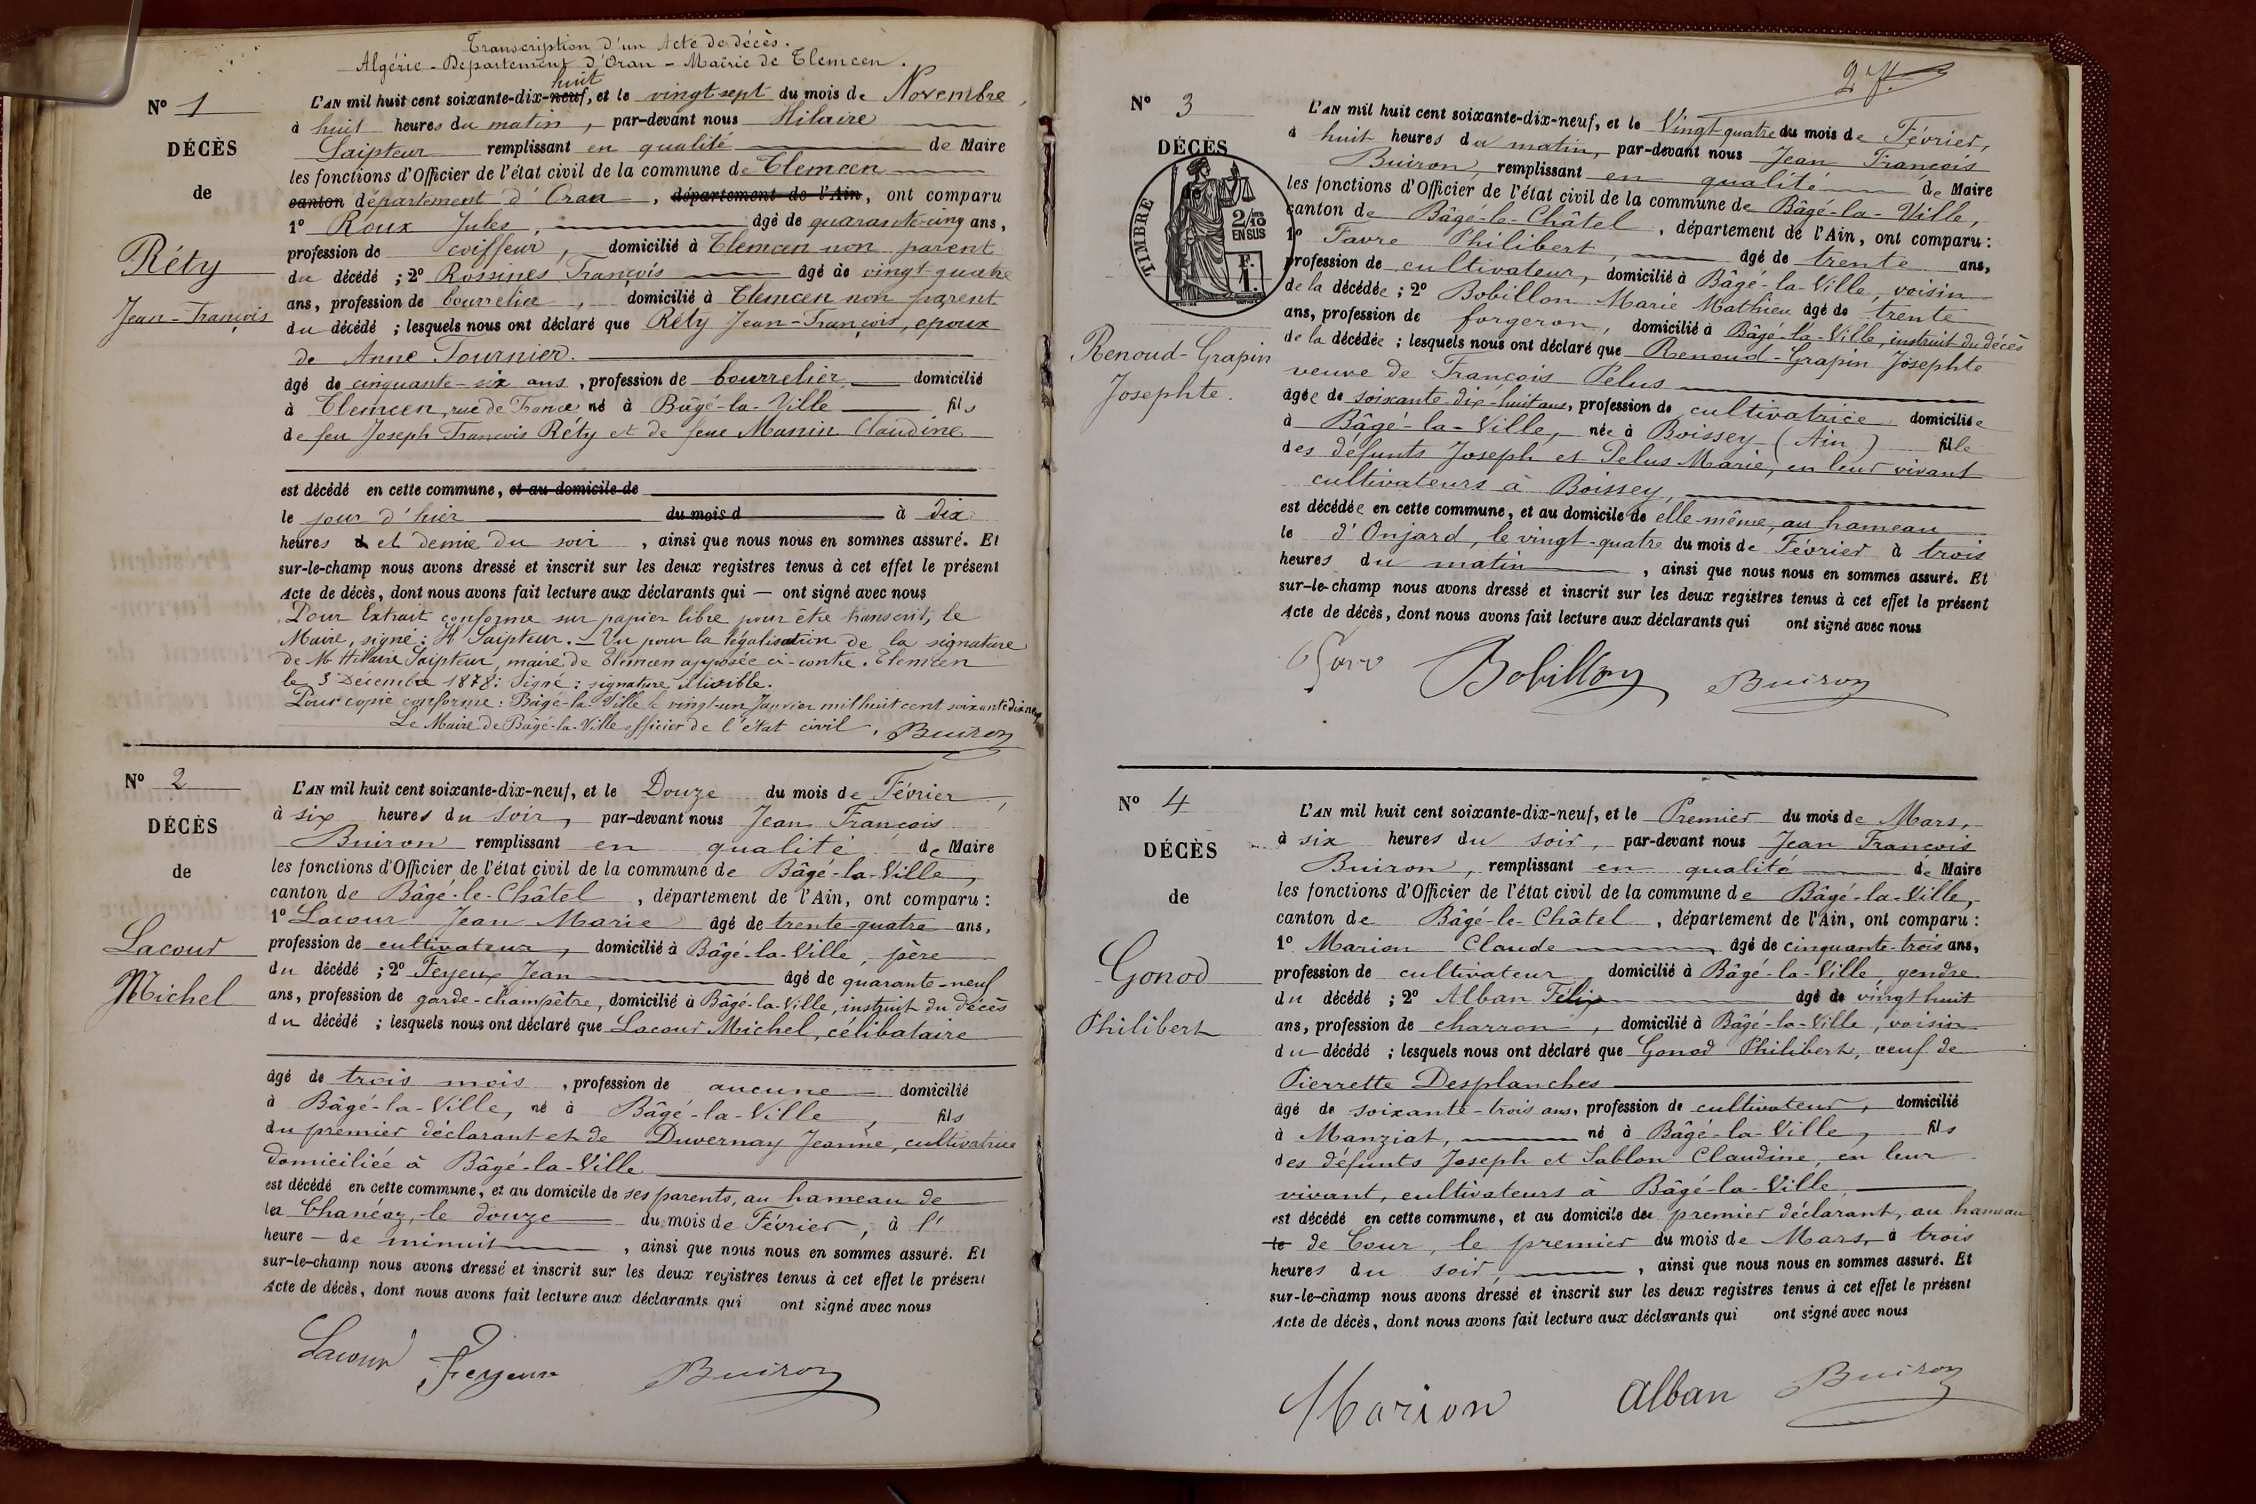 Transcription d'un Acte de décès.
Algérie - Département d'Oran - Mairie de Tlemcen.
N° 1
DÉCÈS
de
Réty
Jean-François
huit
L'AN mil huit cent soixante-dix-neuf, et le vingt sept du mois de Novembre,
à huit heures du matin, par-devant nous Hilaire
Saipteur remplissant en qualité de Maire
les fonctions d'Officier de l'état civil de la commune de Tlemcen
canton département d'Oran, département de l'Ain, ont comparu
1° Roux Jules, âgé de quarante-cinq ans,
profession de coiffeur, domicilié à Tlemcen non parent
du décédé ; 2° Rossines François âgé de vingt-quatre
ans, profession de bourrelier, domicilié à Tlemcen non parent
du décédé ; lesquels nous ont déclaré que Réty Jean-François, époux
de Anne Tournier.
âgé de cinquante-six ans, profession de bourrelier domicilié
à Tlemcen, rue de France né à Bâgé-la-Ville fils
de feu Joseph François Réty et de feue Manin Claudine
est décédé en cette commune, et au domicile de
le jour d'hier du mois d à dix
heures et demie du soir, ainsi que nous nous en sommes assuré. Et
sur-le-champ nous avons dressé et inscrit sur les deux registres tenus à cet effet le présent
Acte de décès, dont nous avons fait lecture aux déclarants qui — ont signé avec nous
Pour Extrait conforme sur papier libre pour être transcrit, le
Maire, signé : H Saipteur. — Vu pour la légalisation de la signature
de Mr Hilaire Saipteur, maire de Tlemcen apposée ci-contre. Tlemcen
le 3 Décembre 1878 : Signé : signature illisible.
Pour copie conforme : Bâgé-la-Ville le vingt-un Janvier mil huit cent soixante dix neuf
Le Maire de Bâgé-la-Ville officier de l'état civil. Buiron
N° 2
DÉCÈS
de
Lacour
Michel
L'AN mil huit cent soixante-dix-neuf, et le Douze du mois de Février,
à six heures du soir, par-devant nous Jean François
Buiron remplissant en qualité de Maire
les fonctions d'Officier de l'état civil de la commune de Bâgé-la-Ville,
canton de Bâgé-le-Châtel, département de l'Ain, ont comparu :
1° Lacour Jean Marie âgé de trente-quatre ans,
profession de cultivateur, domicilié à Bâgé-la-Ville, père
du décédé ; 2° Feyeux Jean âgé de quarante-neuf
ans, profession de garde-champêtre, domicilié à Bâgé-la-Ville, instruit du décès
du décédé ; lesquels nous ont déclaré que Lacour Michel, célibataire
âgé de trois mois, profession de aucune domicilié
à Bâgé-la-Ville, né à Bâgé-la-Ville, fils
du premier déclarant et de Duvernay Jeanne, cultivatrice
domiciliée à Bâgé-la-Ville
est décédé en cette commune, et au domicile de ses parents, au hameau de
le douze du mois de Février, à l'
heure de minuit, ainsi que nous nous en sommes assuré. Et
sur-le-champ nous avons dressé et inscrit sur les deux registres tenus à cet effet le présent
Acte de décès, dont nous avons fait lecture aux déclarants qui ont signé avec nous
Lacour Feyeux Buiron
N° 3
DÉCÈS
TIMBRE
2/10 EN SUS
F. 1.
Renoud-Grapin
Josephte.
L'AN mil huit cent soixante-dix-neuf, et le Vingt-quatre du mois de Février,
à huit heures du matin, par-devant nous Jean François
Buiron, remplissant en qualité de Maire
les fonctions d'Officier de l'état civil de la commune de Bâgé-la-Ville,
canton de Bâgé-le-Châtel, département de l'Ain, ont comparu :
1° Favre Philibert, âgé de trente ans,
profession de cultivateur, domicilié à Bâgé-la-Ville, voisin
de la décédée ; 2° Bobillon Marie Mathieu âgé de trente
ans, profession de forgeron, domicilié à Bâgé-la-Ville, instruit du décès
de la décédée ; lesquels nous ont déclaré que Renoud-Grapin Josephte
veuve de François Pelus
âgée de soixante-dix-huit ans, profession de cultivatrice domiciliée
à Bâgé-la-Ville, née à Boissey (Ain) fille
des défunts Joseph et Pelus Marie, en leur vivant
cultivateurs à Boissey,
est décédée en cette commune, et au domicile de elle-même, au hameau
le d'Onjard, le vingt-quatre du mois de Février à trois
heures du matin, ainsi que nous nous en sommes assuré. Et
sur-le-champ nous avons dressé et inscrit sur les deux registres tenus à cet effet le présent
Acte de décès, dont nous avons fait lecture aux déclarants qui ont signé avec nous
Bobillon Buiron
N° 4
DÉCÈS
de
Gonod
Philibert
L'AN mil huit cent soixante-dix-neuf, et le Premier du mois de Mars,
à six heures du soir, par-devant nous Jean François
Buiron, remplissant en qualité de Maire
les fonctions d'Officier de l'état civil de la commune de Bâgé-la-Ville,
canton de Bâgé-le-Châtel, département de l'Ain, ont comparu :
1° Marion Claude, âgé de cinquante-trois ans,
profession de cultivateur, domicilié à Bâgé-la-Ville, gendre
du décédé ; 2° Alban Félix âgé de vingt huit
ans, profession de charron, domicilié à Bâgé-la-Ville, voisin
du décédé ; lesquels nous ont déclaré que Gonod Philibert, veuf de
Pierrette Desplanches
âgé de soixante-trois ans, profession de cultivateur, domicilié
à Manziat, né à Bâgé-la-Ville, fils
des défunts Joseph et Sablon Claudine, en leur
vivant, cultivateurs à Bâgé-la-Ville,
est décédé en cette commune, et au domicile du premier déclarant, au hameau
le de Cour, le premier du mois de Mars, à trois
heures du soir, ainsi que nous nous en sommes assuré. Et
sur-le-champ nous avons dressé et inscrit sur les deux registres tenus à cet effet le présent
Acte de décès, dont nous avons fait lecture aux déclarants qui ont signé avec nous
Marion Alban Buiron